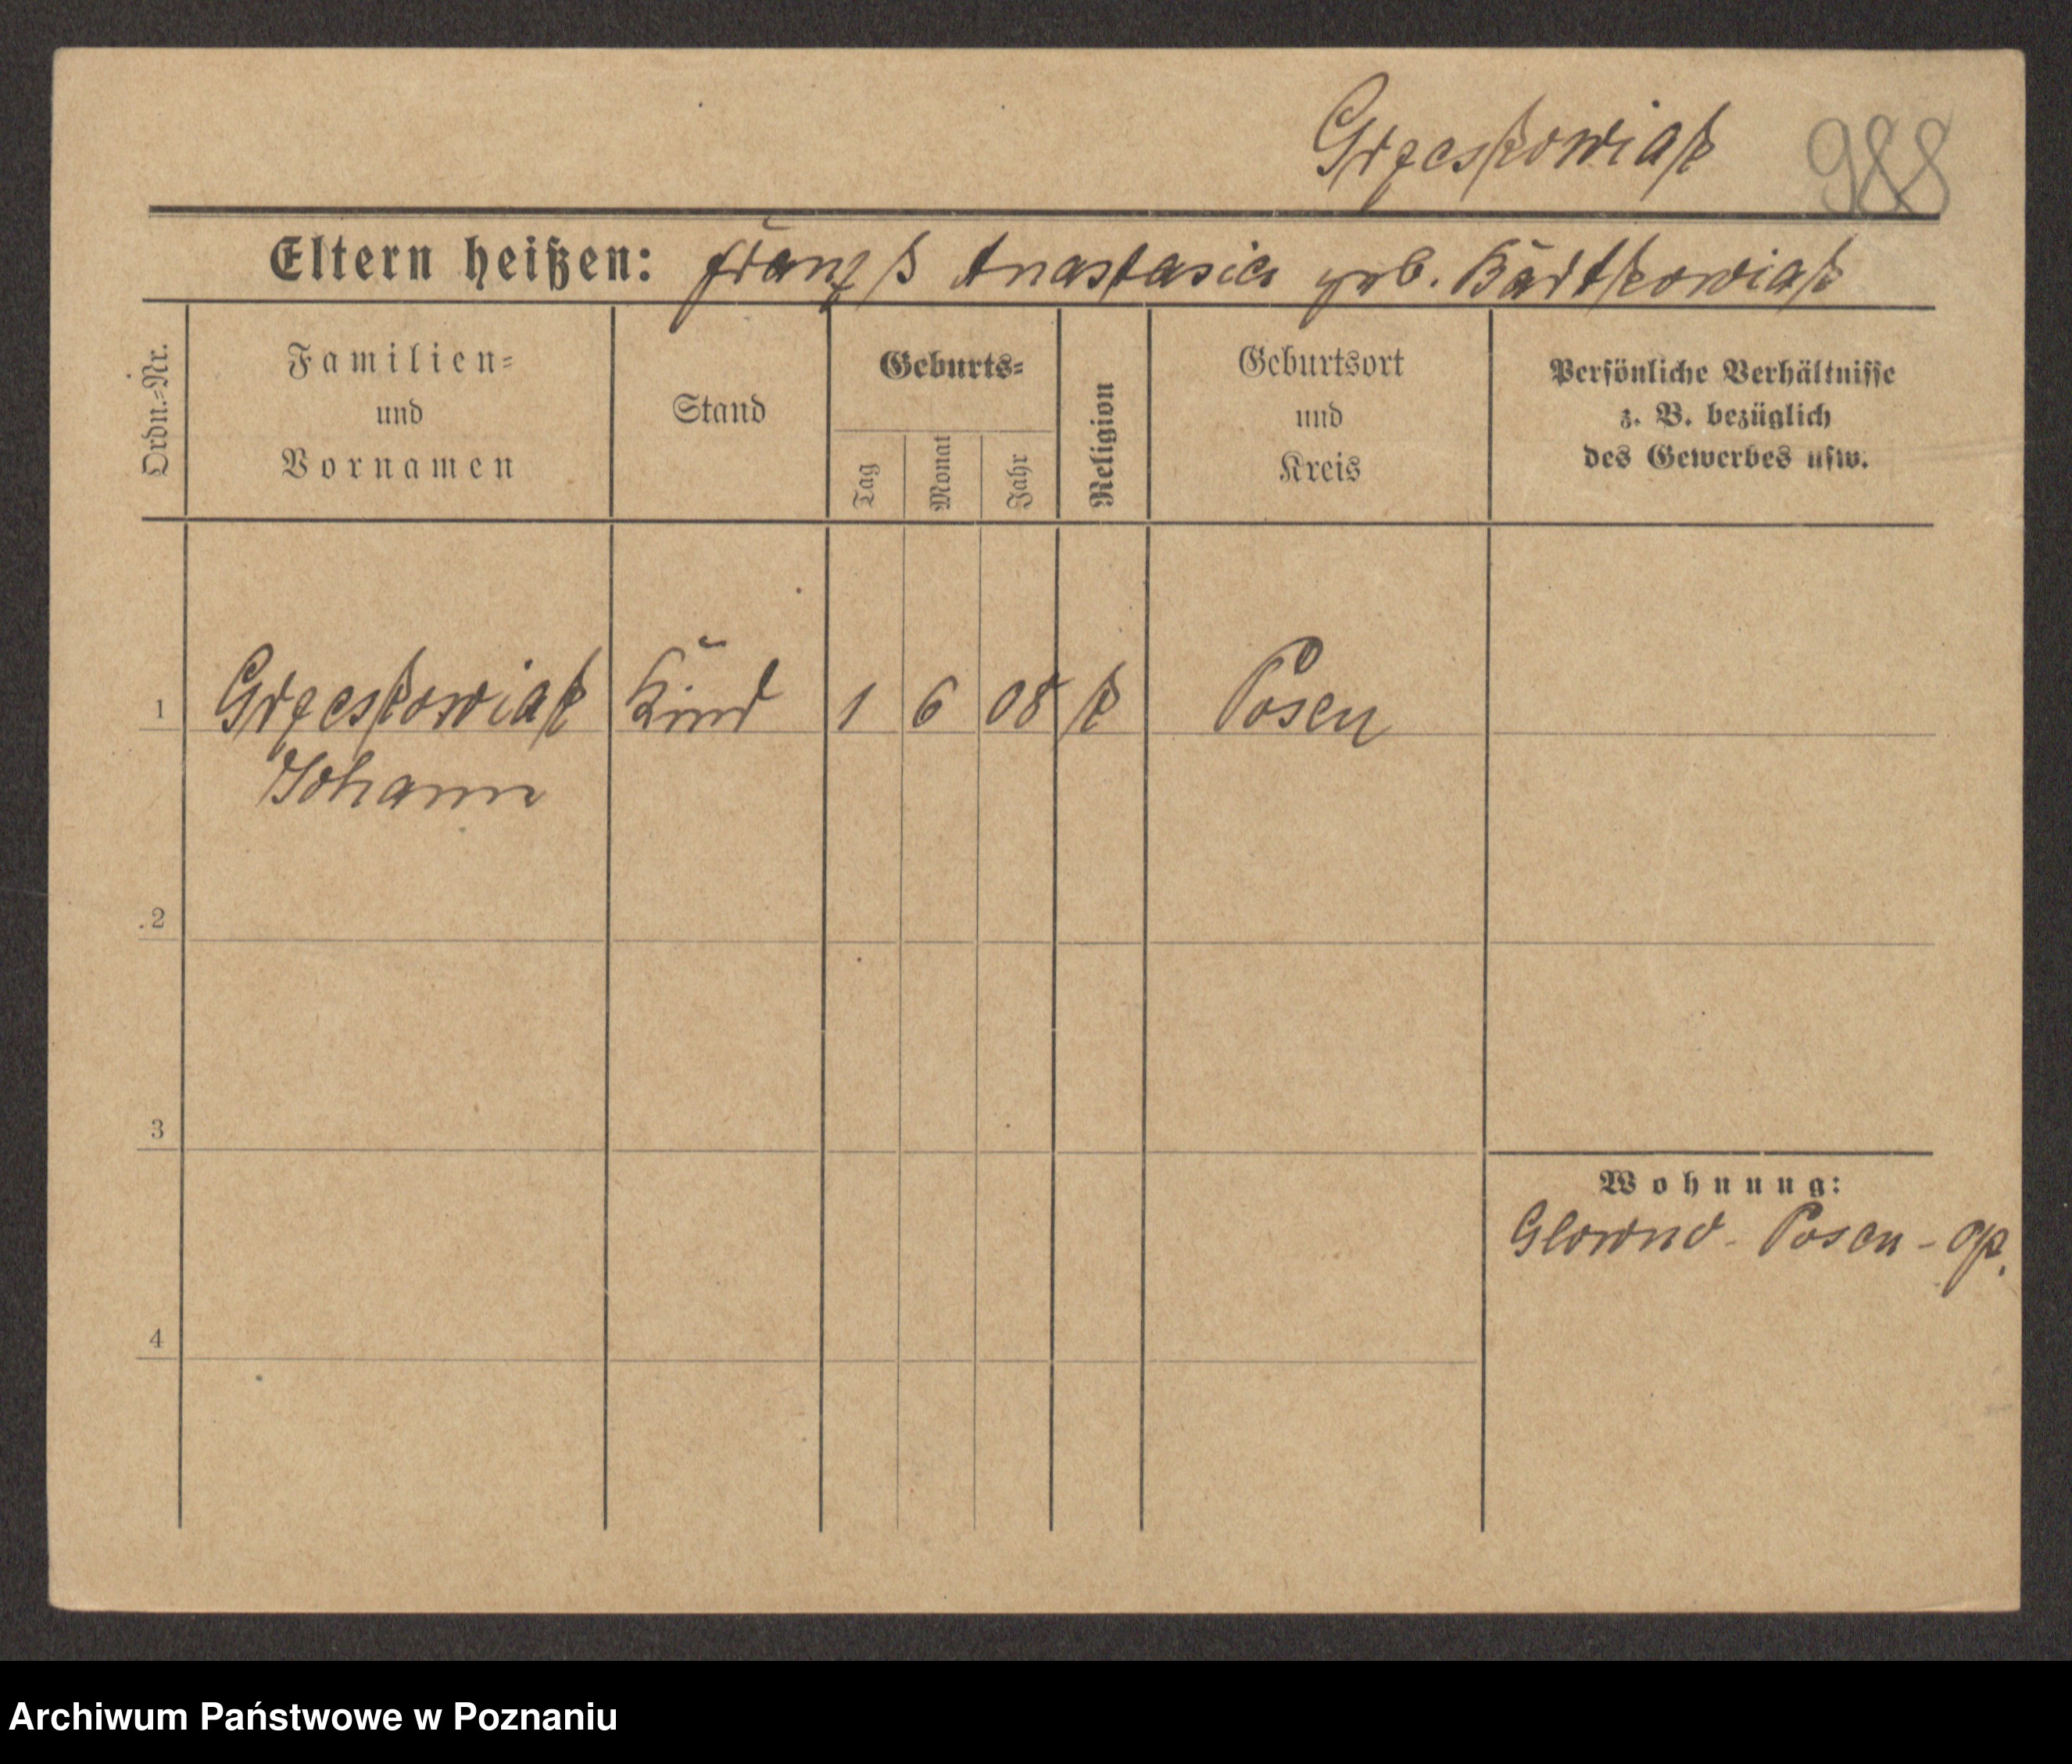 Grzeskowiak 988
Eltern heißen: Franz & Anastasia geb. Bartkowiak
Ordn.-Nr.
Familien-
und
Vornamen
Stand
Geburts-
Tag
Monat
Jahr
Religion
Geburtsort
und
Kreis
Persönliche Verhältnisse
z. B. bezüglich
des Gewerbes usw.
1 Grzeskowiak Kind 1 6 08 k Posen
Johann
2
3
Wohnung:
Glowno - Posen -
4
Archiwum Państwowe w Poznaniu